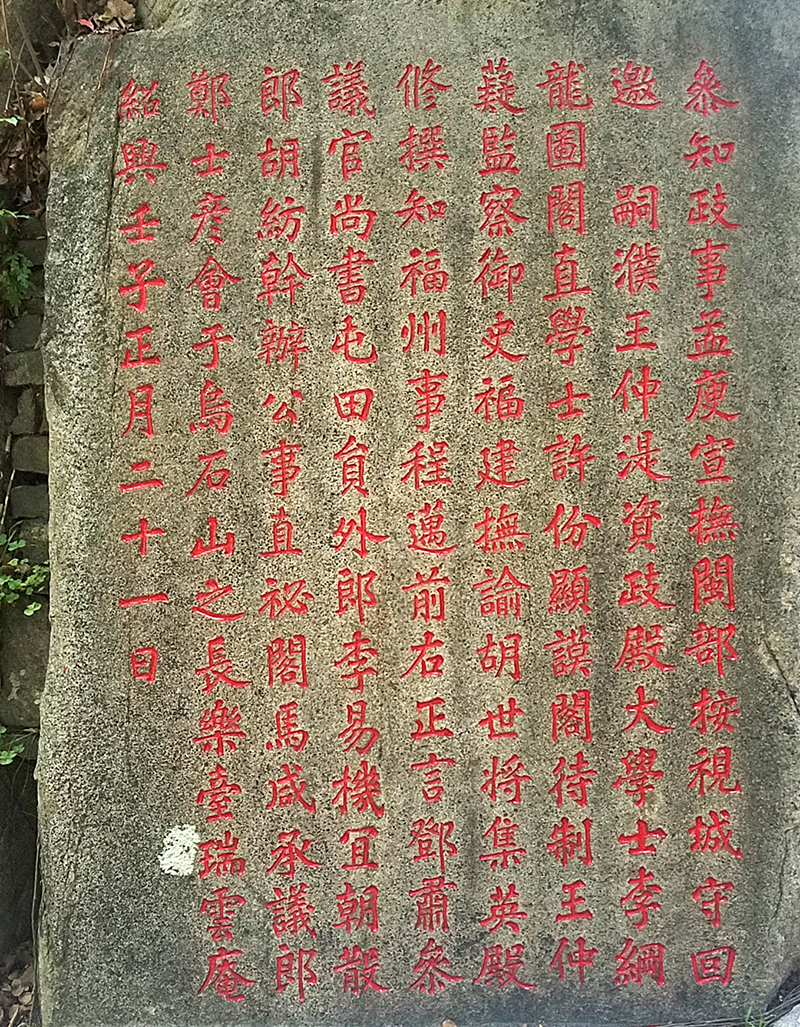 叅知政事孟庾宣撫閩部按視城守回
邀　嗣濮王仲湜資政殿大學士李綱
龍圖閣直學士許份顯謨閣待制王仲
薿監察御史福建撫諭胡世将集英殿
修撰知福州事程邁前右正言鄧肅叅
議官尚書屯田負外郎李易機冝朝散
郎胡紡幹辦公事直祕閣馬咸承議郎
鄭士彦會于烏石山之長樂臺瑞雲庵
紹興壬子正月二十一日